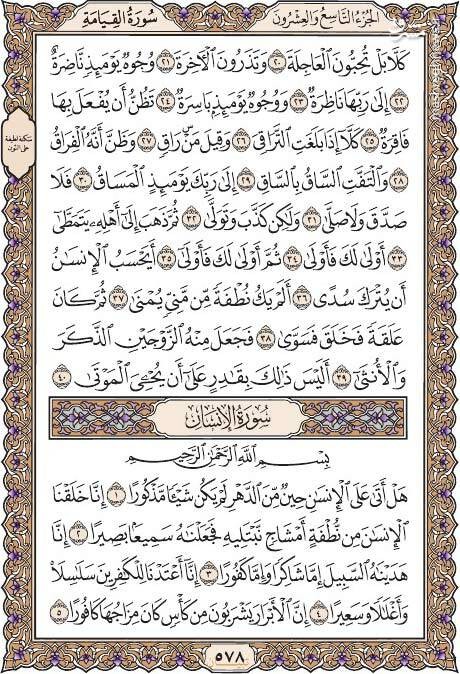 سُورَةُ القِيَامَةِ
الجُزْءُ التَّاسِعُ وَالعِشْرُونَ
كَلَّا بَلْ تُحِبُّونَ ٱلْعَاجِلَةَ ٢٠ وَتَذَرُونَ ٱلْأَخِرَةَ ٢١ وُجُوهٌ يَوْمَئِذٍ نَّاضِرَةٌ
٢٢ إِلَىٰ رَبِّهَا نَاظِرَةٌ ٢٣ وَوُجُوهٌ يَوْمَئِذٍۭ بَاسِرَةٌ ٢٤ تَظُنُّ أَن يُفْعَلَ بِهَا
فَاقِرَةٌ ٢٥ كَلَّآ إِذَا بَلَغَتِ ٱلتَّرَاقِيَ ٢٦ وَقِيلَ مَنْ ۜ رَاقٍ ٢٧ وَظَنَّ أَنَّهُ ٱلْفِرَاقُ
٢٨ وَٱلْتَفَّتِ ٱلسَّاقُ بِٱلسَّاقِ ٢٩ إِلَىٰ رَبِّكَ يَوْمَئِذٍ ٱلْمَسَاقُ ٣٠ فَلَا
صَدَّقَ وَلَا صَلَّىٰ ٣١ وَلَٰكِن كَذَّبَ وَتَوَلَّىٰ ٣٢ ثُمَّ ذَهَبَ إِلَىٰٓ أَهْلِهِۦ يَتَمَطَّىٰٓ
٣٣ أَوْلَىٰ لَكَ فَأَوْلَىٰ ٣٤ ثُمَّ أَوْلَىٰ لَكَ فَأَوْلَىٰٓ ٣٥ أَيَحْسَبُ ٱلْإِنسَٰنُ
أَن يُتْرَكَ سُدًى ٣٦ أَلَمْ يَكُ نُطْفَةً مِّن مَّنِىٍّ يُمْنَىٰ ٣٧ ثُمَّ كَانَ
عَلَقَةً فَخَلَقَ فَسَوَّىٰ ٣٨ فَجَعَلَ مِنْهُ ٱلزَّوْجَيْنِ ٱلذَّكَرَ
وَٱلْأُنثَىٰٓ ٣٩ أَلَيْسَ ذَٰلِكَ بِقَٰدِرٍ عَلَىٰٓ أَن يُحْـِۧىَ ٱلْمَوْتَىٰ ٤٠
سُورَةُ الإِنسَانِ
بِسْمِ ٱللَّهِ ٱلرَّحْمَٰنِ ٱلرَّحِيمِ
هَلْ أَتَىٰ عَلَى ٱلْإِنسَٰنِ حِينٌ مِّنَ ٱلدَّهْرِ لَمْ يَكُن شَيْـًٔا مَّذْكُورًا ١ إِنَّا خَلَقْنَا
ٱلْإِنسَٰنَ مِن نُّطْفَةٍ أَمْشَاجٍ نَّبْتَلِيهِ فَجَعَلْنَٰهُ سَمِيعًۢا بَصِيرًا ٢ إِنَّا
هَدَيْنَٰهُ ٱلسَّبِيلَ إِمَّا شَاكِرًا وَإِمَّا كَفُورًا ٣ إِنَّآ أَعْتَدْنَا لِلْكَٰفِرِينَ سَلَٰسِلَا۟
وَأَغْلَٰلًا وَسَعِيرًا ٤ إِنَّ ٱلْأَبْرَارَ يَشْرَبُونَ مِن كَأْسٍ كَانَ مِزَاجُهَا كَافُورًا ٥
٥٧٨
سكتة لطيفة
على النون